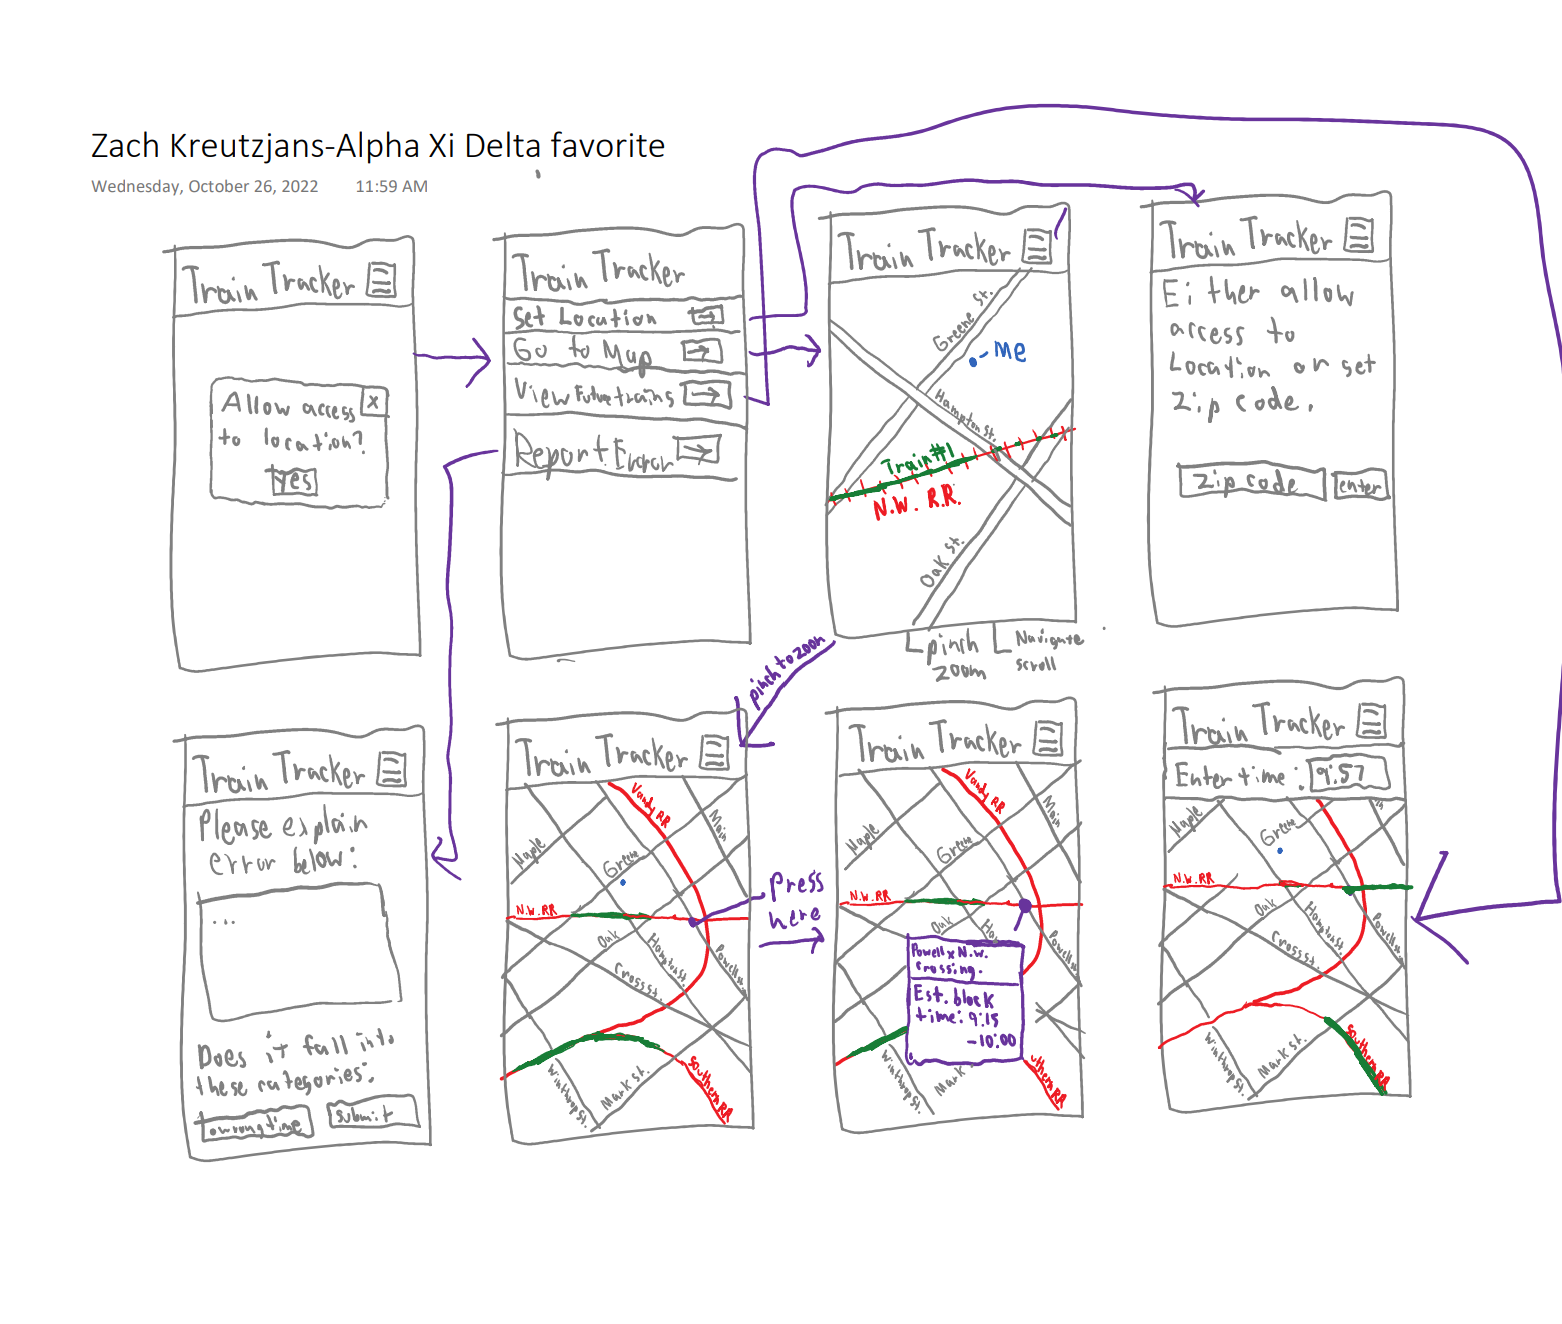 Zach Kreutzjans-Alpha Xi Delta favorite
Wednesday, October 26, 2022 11:59 AM
Train Tracker
Allow access
to location?
x
Yes
Train Tracker
Set Location
Go to Map
View Future trains
Report Error
Train Tracker
Greene St.
Me
Hampton St.
Train#1
N.W. R.R.
Oak St.
pinch
zoom
Navigate
scroll
Train Tracker
Either allow
access to
Location or set
Zip code.
Zip code
enter
pinch to zoom
Train Tracker
Please explain
error below:
...
Does it fall into
these categories:
wrong time
submit
Train Tracker
Vandy RR
Main
Maple
Greene
N.W. RR
Oak
Hampton St.
Cross St.
Powell St.
Winthrop St.
Mark St.
Southern RR
Press
here
Train Tracker
Vandy RR
Main
Maple
Greene
N.W. RR
Oak
Powell St.
Powell x N.W.
crossing.
Est. block
time: 9:15
-10:00
Winthrop St.
Mark
uthern RR
Train Tracker
Enter time: 9:57
Maple
Greene
N.W. RR
Oak
Hampton St.
Cross St.
Powell St.
Winthrop St.
Mark St.
Southern RR